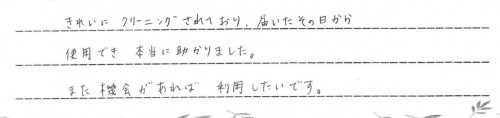 きれいに クリーニングされており、届いたその日から
使用でき 本当に助かりました。
また機会があれば 利用したいです。